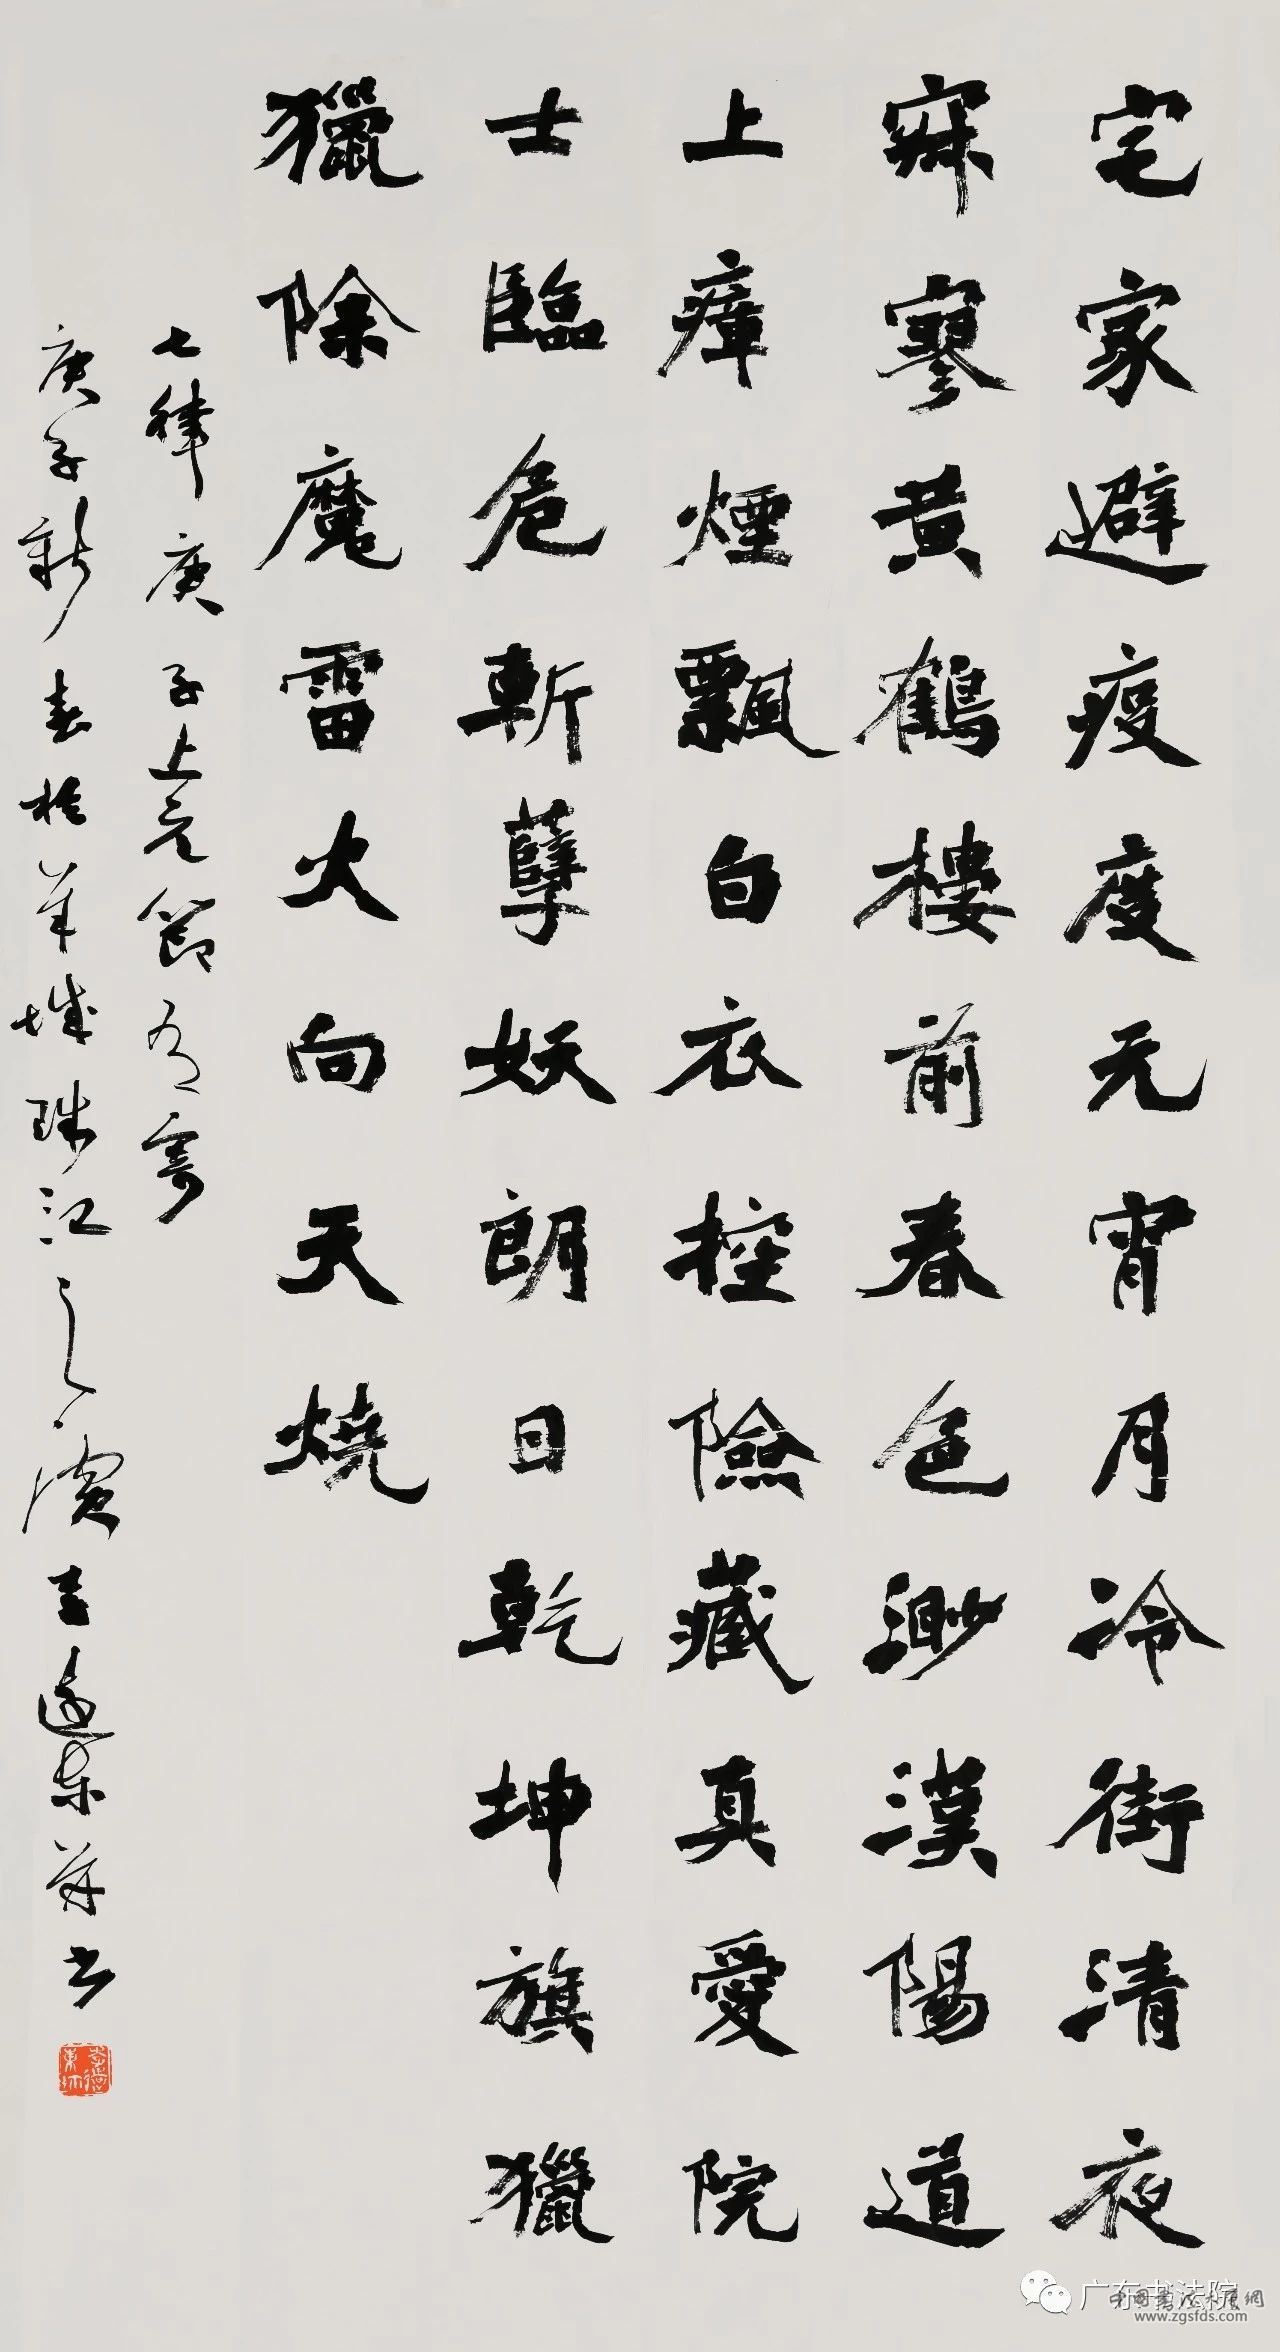 宅家避疫度元宵月冷街清夜
寂寥黄鶴樓前春色渺漢陽道
上瘴煙飄白衣控險藏真愛院
士臨危斬孽妖朗日乾坤旗獵
獵除魔雷火向天燒
七律庚子上元節有寄
庚子新春於羊城珠江之濱李遠東并書
广东书法院
中国書法大厦網
www.zgsfds.com